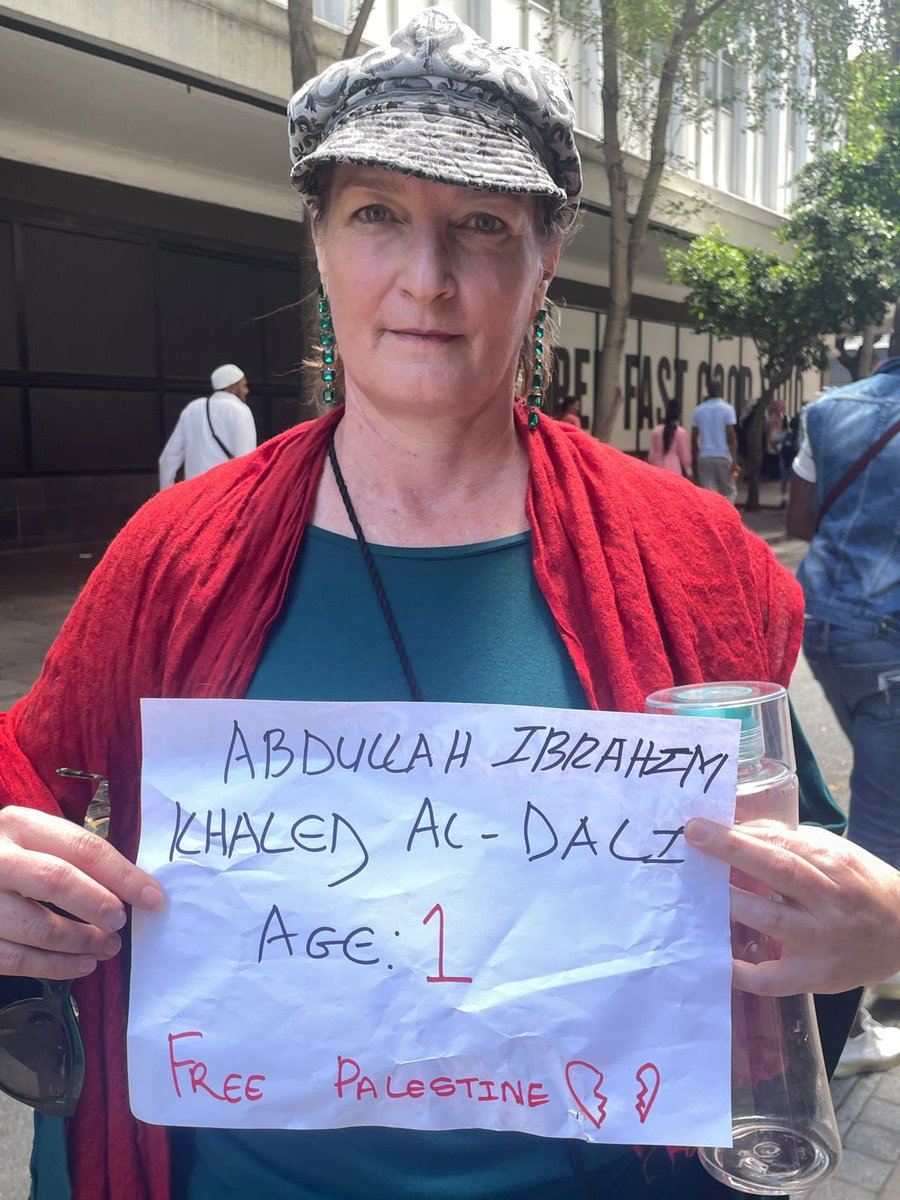 ABDULLAH IBRAHIM
KHALED AL-DALI
AGE: 1
FREE PALESTINE
FAST